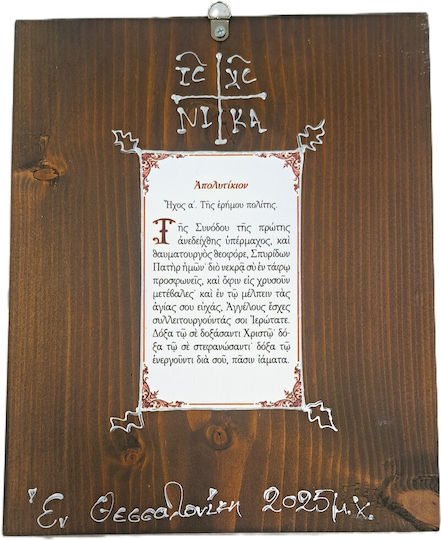 ΙC ΧC
ΝΙ ΚΑ
Ἀπολυτίκιον
Ἦχος α΄. Τῆς ἐρήμου πολίτης.
Τῆς Συνόδου τῆς πρώτης
ἀνεδείχθης ὑπέρμαχος, καὶ
θαυματουργὸς θεοφόρε, Σπυρίδων
Πατὴρ ἡμῶν· διὸ νεκρᾷ σὺ ἐν τάφῳ
προσφωνεῖς, καὶ ὄφιν εἰς χρυσοῦν
μετέβαλες· καὶ ἐν τῷ μέλπειν τὰς
ἁγίας σου εὐχάς, Ἀγγέλους ἔσχες
συλλειτουργούντάς σοι Ἱερώτατε.
Δόξα τῷ σὲ δοξάσαντι Χριστῷ· δό-
ξα τῷ σὲ στεφανώσαντι· δόξα τῷ
ἐνεργοῦντι διὰ σοῦ, πᾶσιν ἰάματα.
Ἐν Θεσσαλονίκη 2025 μ.χ.